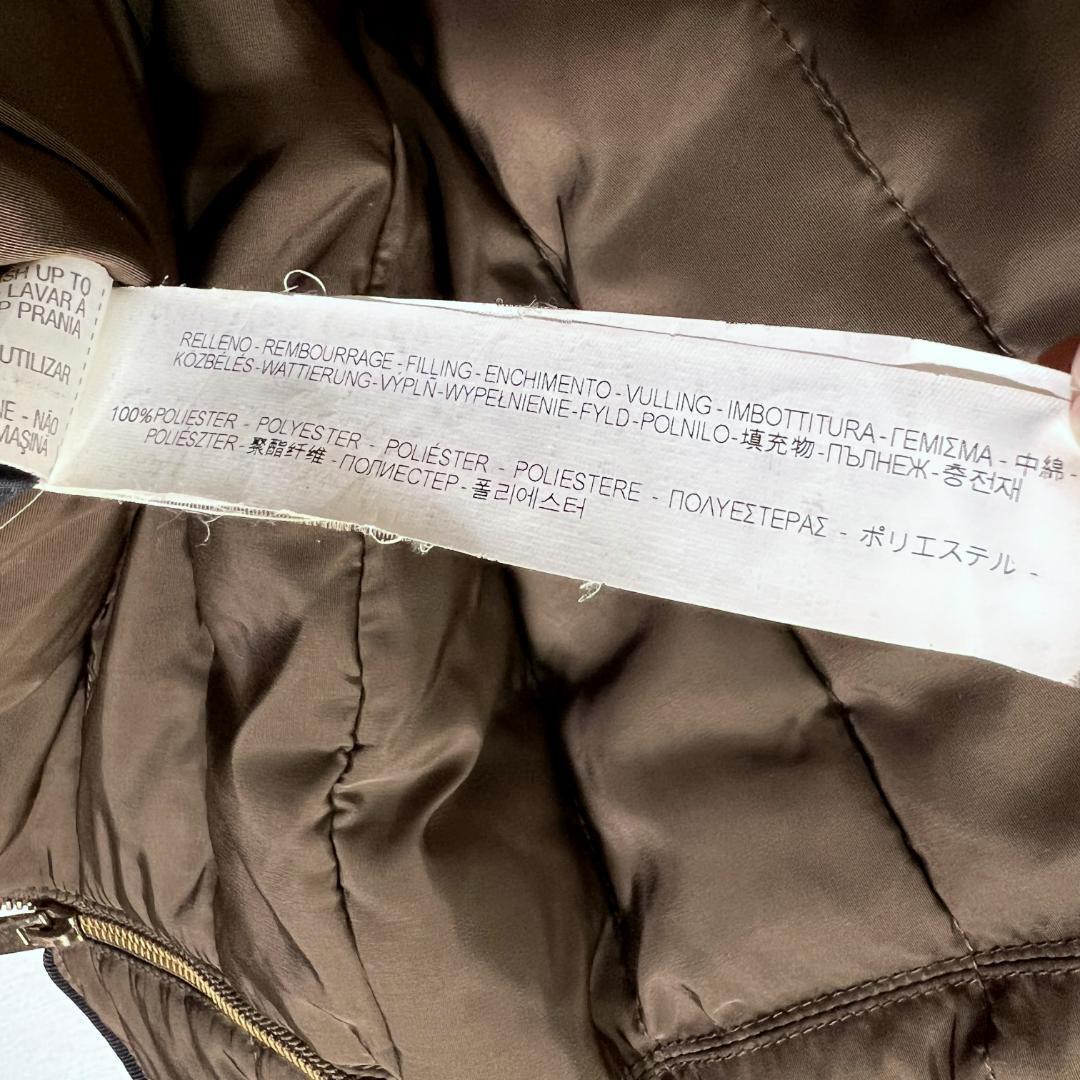 SH UP TO
LAVAR A
P PRANIA
UTILIZAR
NE - NÃO
MAŞINĂ
RELLENO - REMBOURRAGE - FILLING - ENCHIMENTO - VULLING - IMBOTTITURA - ΓΕΜΙΣΜΑ - 中綿 -
KOZBÉLÉS - WATTIERUNG - VYPLŇ - WYPEŁNIENIE - FYLD - POLNILO - 填充物 - ПЪЛНЕЖ - 충전재
100% POLIESTER - POLYESTER - POLIÉSTER - POLIESTERE - ΠΟΛΥΕΣΤΕΡΑΣ - ポリエステル -
POLIESZTER - 聚酯纤维 - ПОЛИЕСТЕР - 폴리에스터